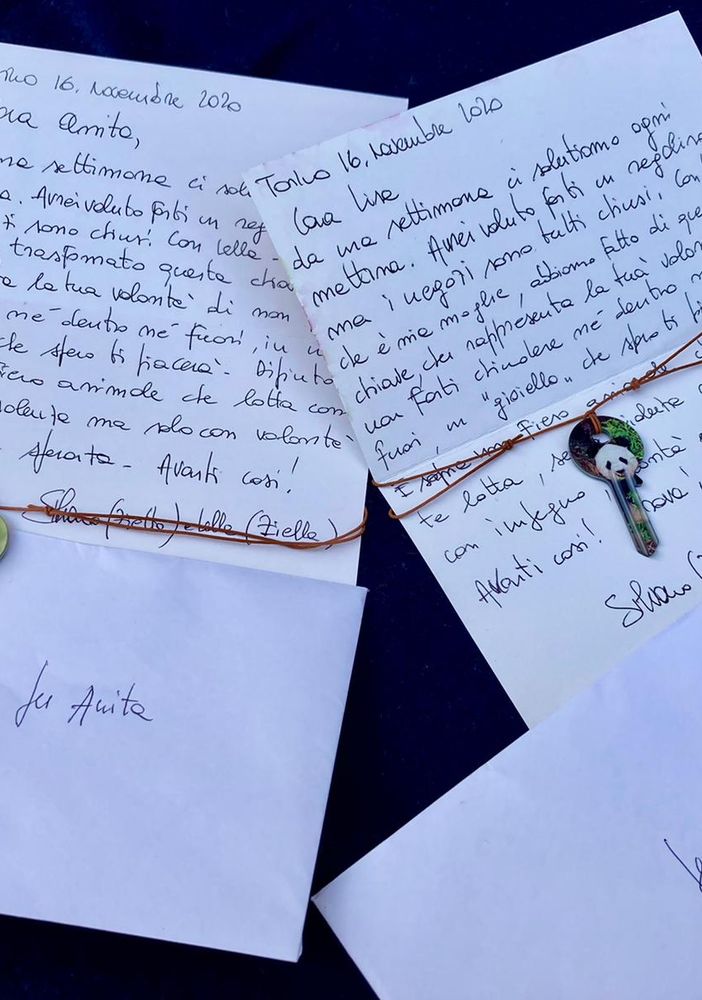 16. Novembre 2020
Anita,
settimana ci
Avrei voluto farti un reg
sono chiusi. Con Lella
trasformato questa chia
la tua volontà di non
me dentro me fuori, in u
che spero ti piacerà. Dipinto
animale che lotta con
ma solo con volontà
sfrontata. Avanti così!
Silvano (Ziello) e Lella (Ziella)
Per Anita
Torino 16. Novembre 2020
Cara Lisa
da una settimana ci salutiamo ogni
mattina. Avrei voluto farti un regalino
ma i negozi sono tutti chiusi, con
che è mia moglie, abbiamo fatto di que
chiave che rappresenta la tua volon
non farti chiudere me dentro m
fuori, un "gioiello" che spero ti pi
fiero animale
te lotta,
con ingegno
Avanti così!
Silvano